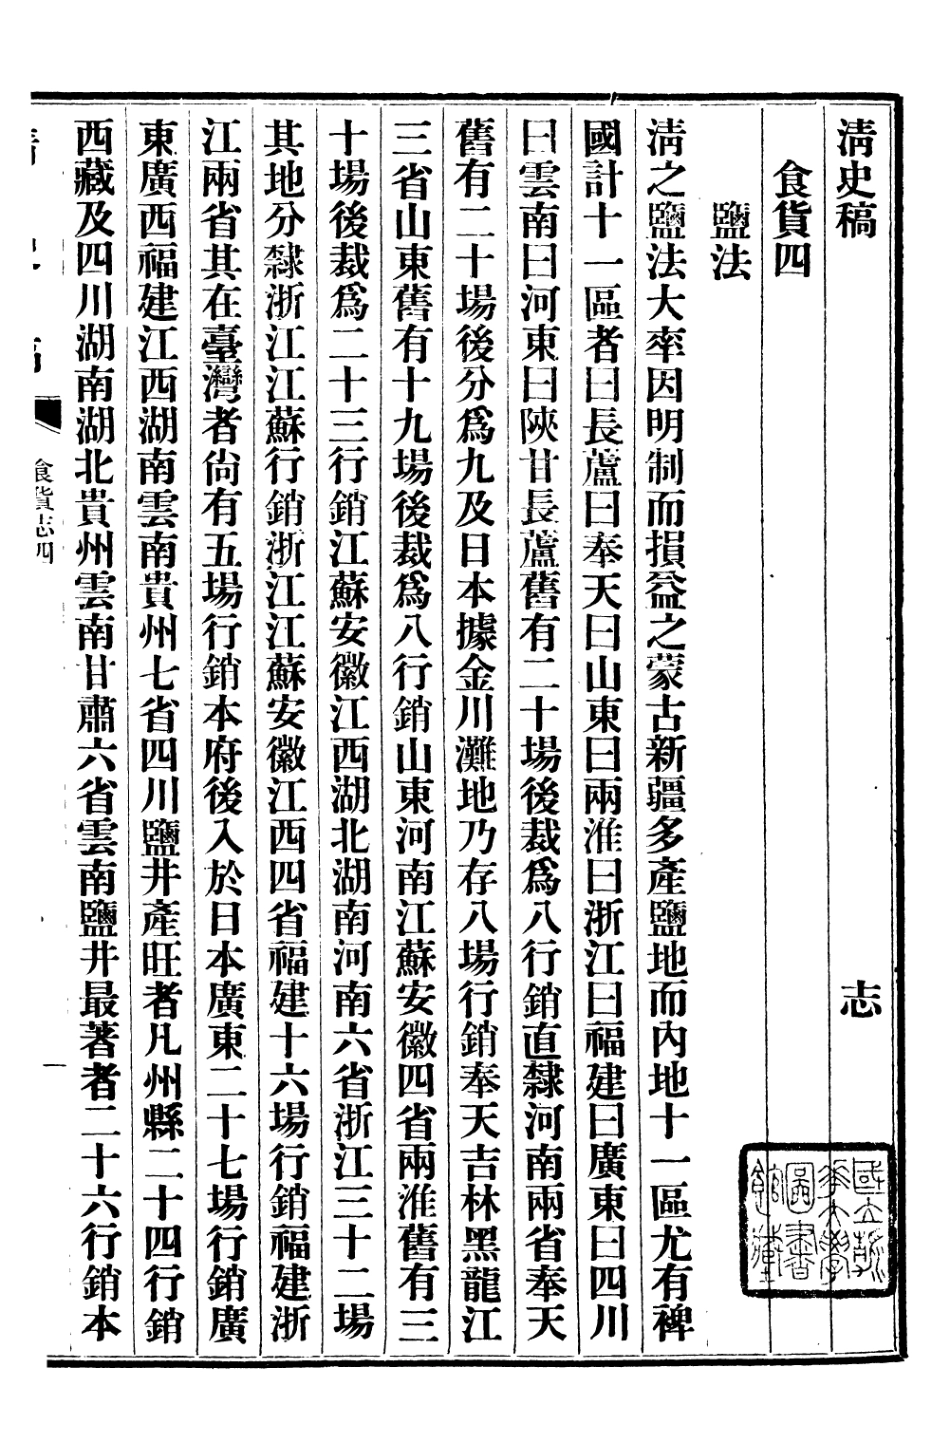 淸史稿 志
食貨四
鹽法
淸之鹽法大率因明制而損益之蒙古新疆多產鹽地而內地十一區尤有裨
國計十一區者曰長蘆曰奉天曰山東曰兩淮曰浙江曰福建曰廣東曰四川
曰雲南曰河東曰陝甘長蘆舊有二十場後裁爲八行銷直隸河南兩省奉天
舊有二十場後分爲九及日本據金川灘地乃存八場行銷奉天吉林黑龍江
三省山東舊有十九場後裁爲八行銷山東河南江蘇安徽四省兩淮舊有三
十場後裁爲二十三行銷江蘇安徽江西湖北湖南河南六省浙江三十二場
其地分隸浙江江蘇行銷浙江江蘇安徽江西四省福建十六場行銷福建浙
江兩省其在臺灣者尙有五場行銷本府後入於日本廣東二十七場行銷廣
東廣西福建江西湖南雲南貴州七省四川鹽井產旺者凡州縣二十四行銷
西藏及四川湖南湖北貴州雲南甘肅六省雲南鹽井最著者二十六行銷本
食貨志四
一